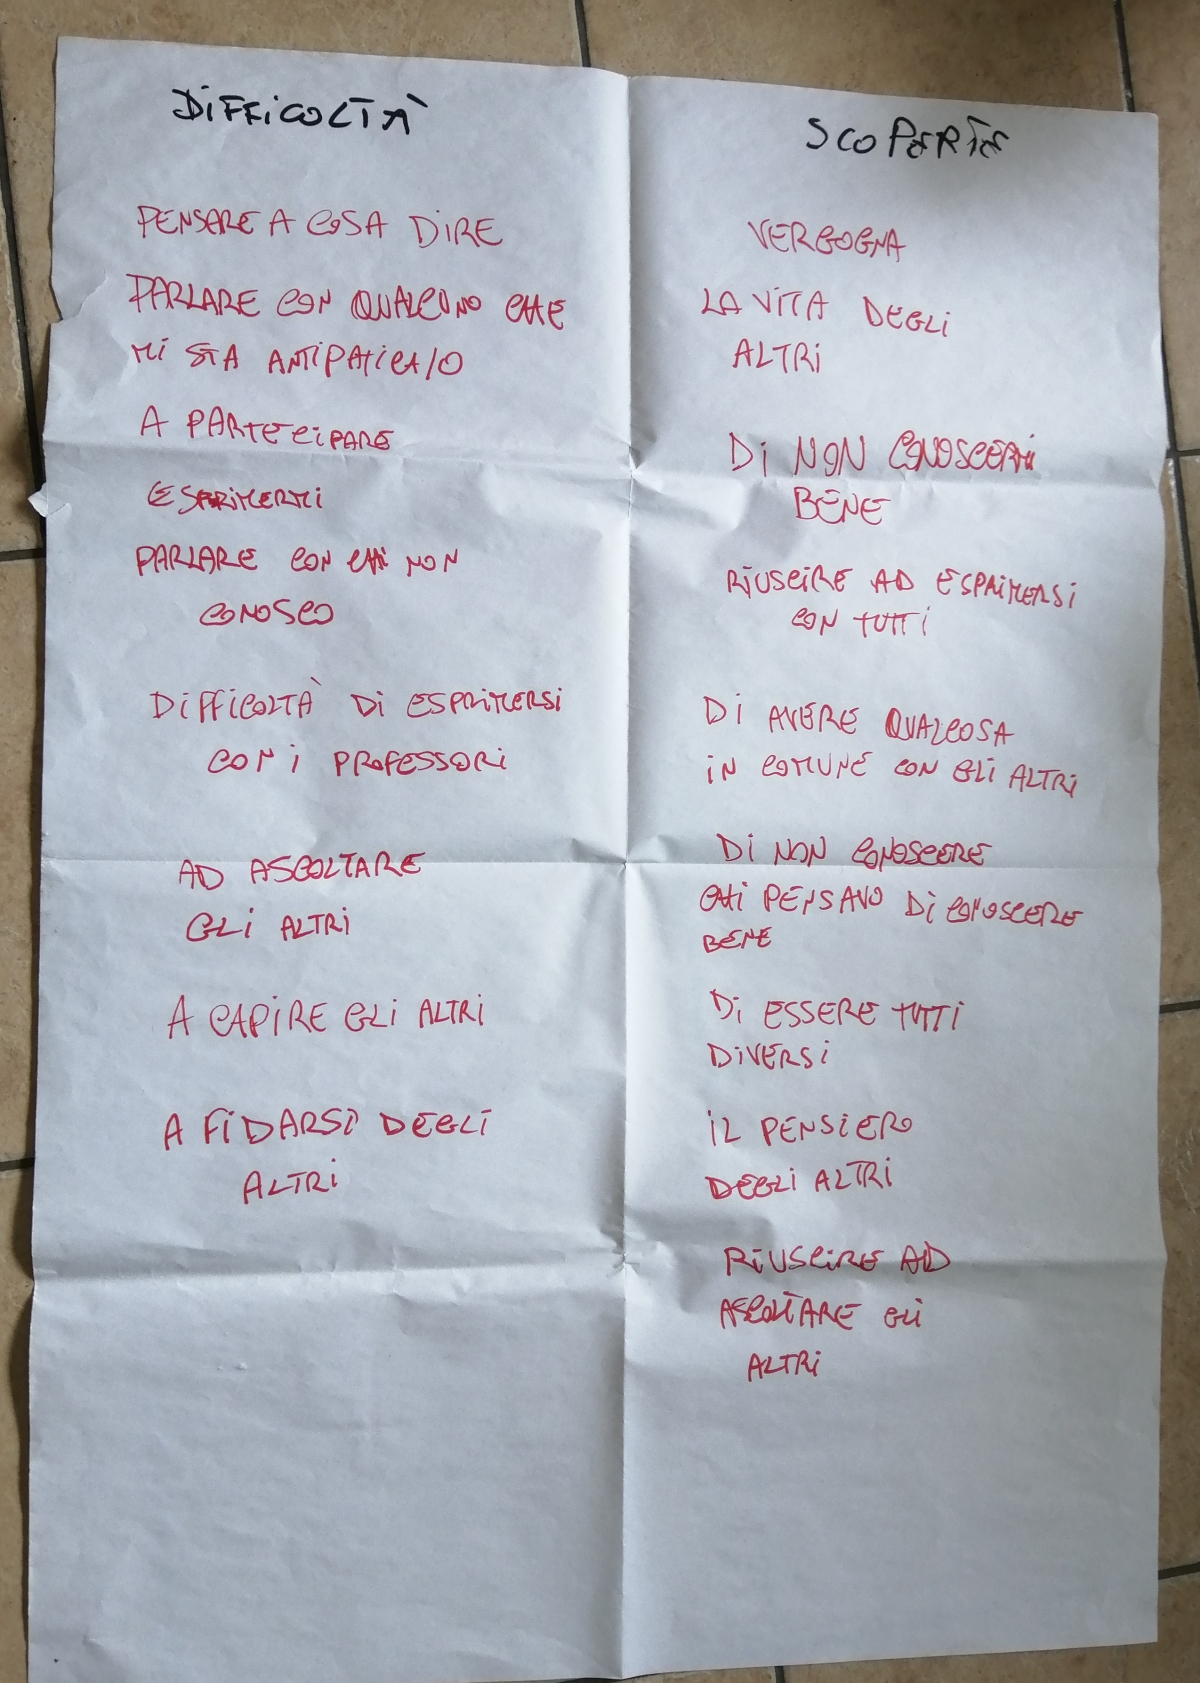 DIFFICOLTÀ
PENSARE A COSA DIRE
PARLARE CON QUALCUNO CHE
MI STA ANTIPATICA/O
A PARTECIPARE
ESPRIMERMI
PARLARE CON CHI NON
CONOSCO
DIFFICOLTÀ DI ESPRIMERSI
CON I PROFESSORI
AD ASCOLTARE
GLI ALTRI
A CAPIRE GLI ALTRI
A FIDARSI DEGLI
ALTRI
SCOPERTE
VERGOGNA
LA VITA DEGLI
ALTRI
DI NON CONOSCERMI
BENE
RIUSCIRE AD ESPRIMERSI
CON TUTTI
DI AVERE QUALCOSA
IN COMUNE CON GLI ALTRI
DI NON CONOSCERE
CHI PENSAVO DI CONOSCERE
BENE
DI ESSERE TUTTI
DIVERSI
IL PENSIERO
DEGLI ALTRI
RIUSCIRE AD
ASCOLTARE GLI
ALTRI